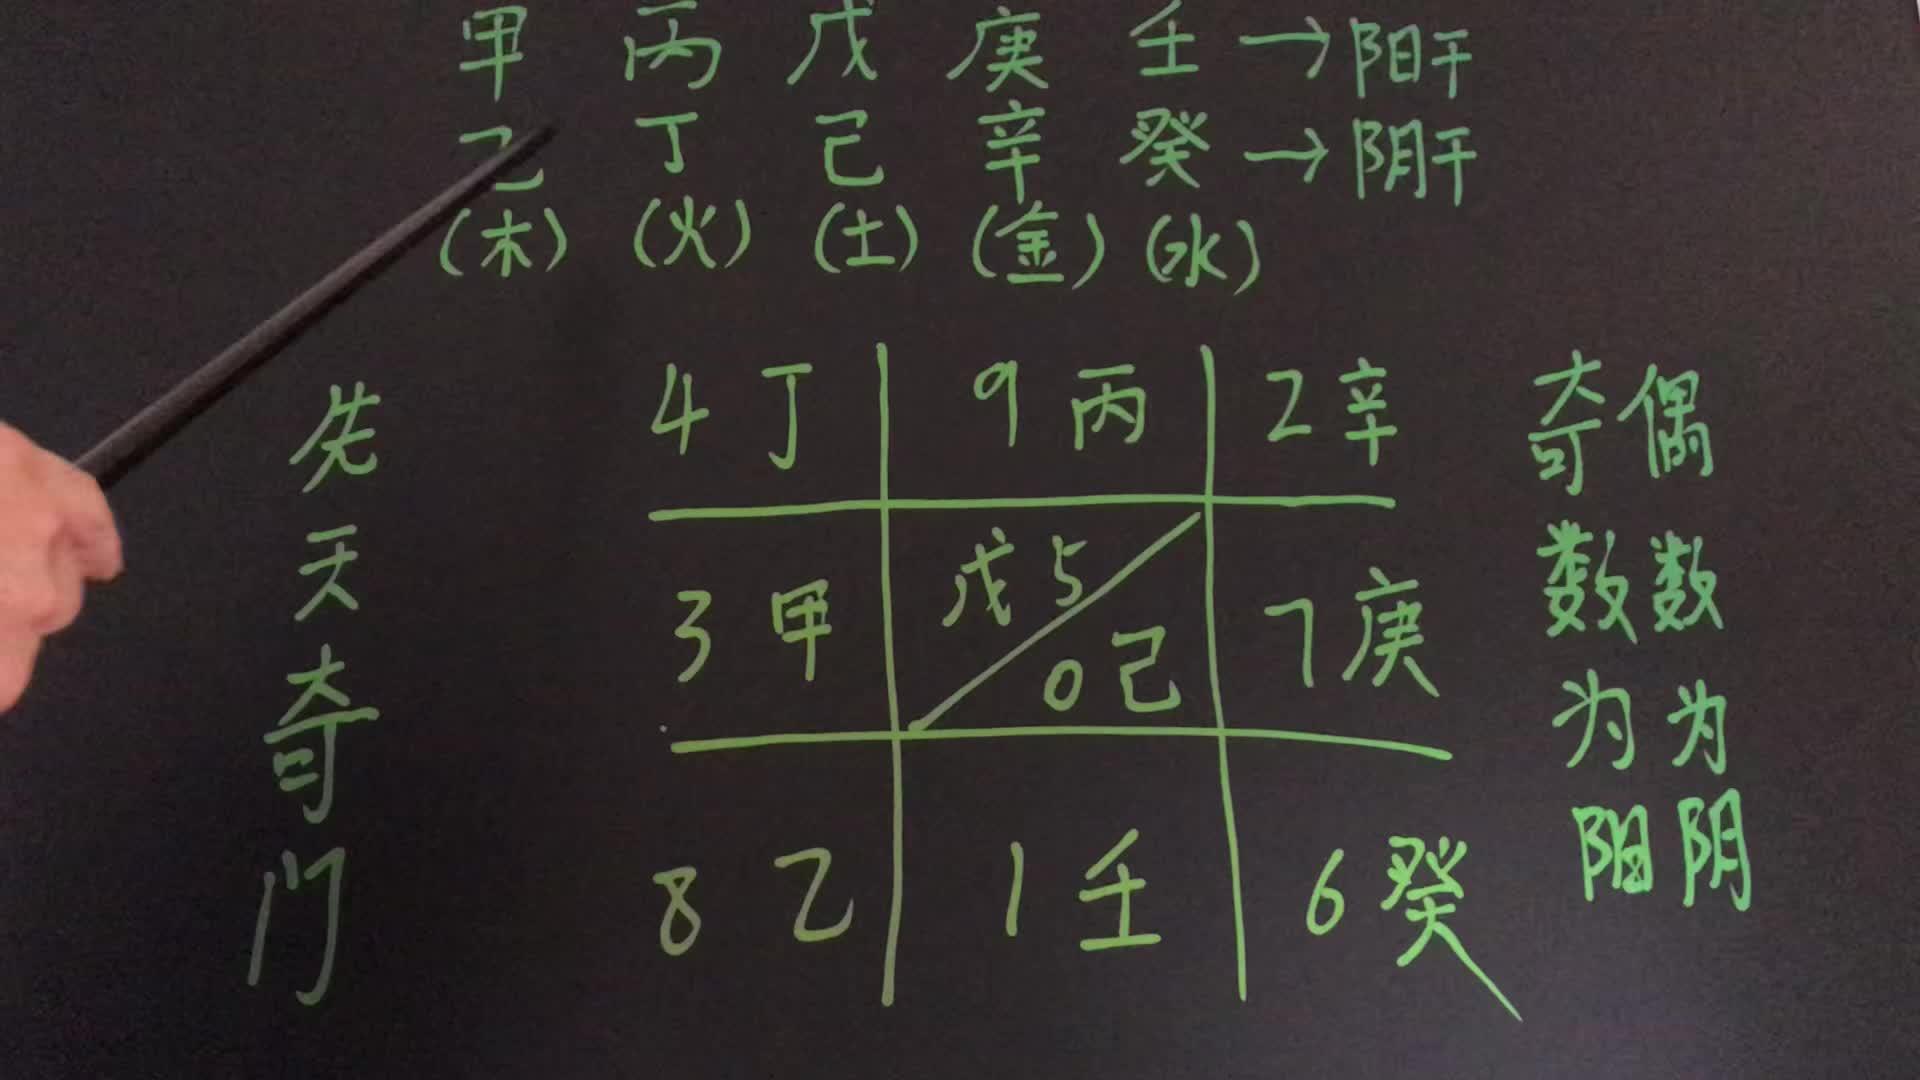 甲 丙 戊 庚 壬 → 阳干
乙 丁 己 辛 癸 → 阴干
(木) (火) (土) (金) (水)
先天奇门
4 丁 9 丙 2 辛
3 甲 戊 5 0 己 7 庚
8 乙 1 壬 6 癸
奇数为阳
偶数为阴